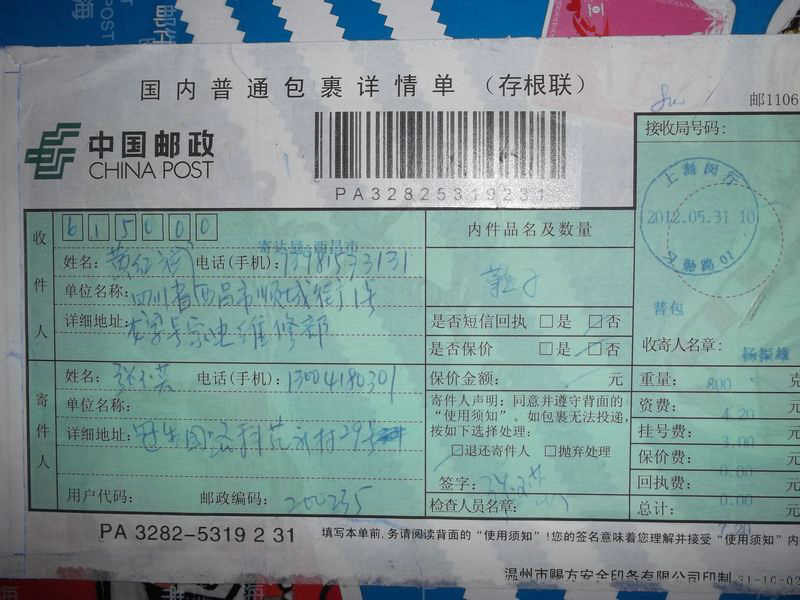 国内普通包裹详情单 (存根联)
邮1106
中国邮政
CHINA POST
PA32825319231
接收局号码:
上海闵行
2012.05.31 10
收件人
615000
寄达局:西昌市
姓名:
电话(手机): 13981593131
单位名称: 四川省西昌市顺城街1号
详细地址: 家电维修部
内件品名及数量
是否短信回执 □是 □否
是否保价 □是 □否
普包
收寄人名章: 杨振雄
寄件人
姓名:
电话(手机): 13004180301
单位名称:
详细地址:
用户代码:
邮政编码: 200235
保价金额: 元
寄件人声明:同意并遵守背面的
“使用须知”。如包裹无法投递,
按如下选择处理:
□退还寄件人 □抛弃处理
签字:
检查人员名章:
重量: 800 克
资费: 4.20 元
挂号费: 3.00 元
保价费: 0.00 元
回执费: 0.00 元
总计: 7.20 元
PA 3282-5319 2 31
填写本单前,务请阅读背面的“使用须知”!您的签名意味着您理解并接受“使用须知”内
温州市赐方安全印务有限公司印制